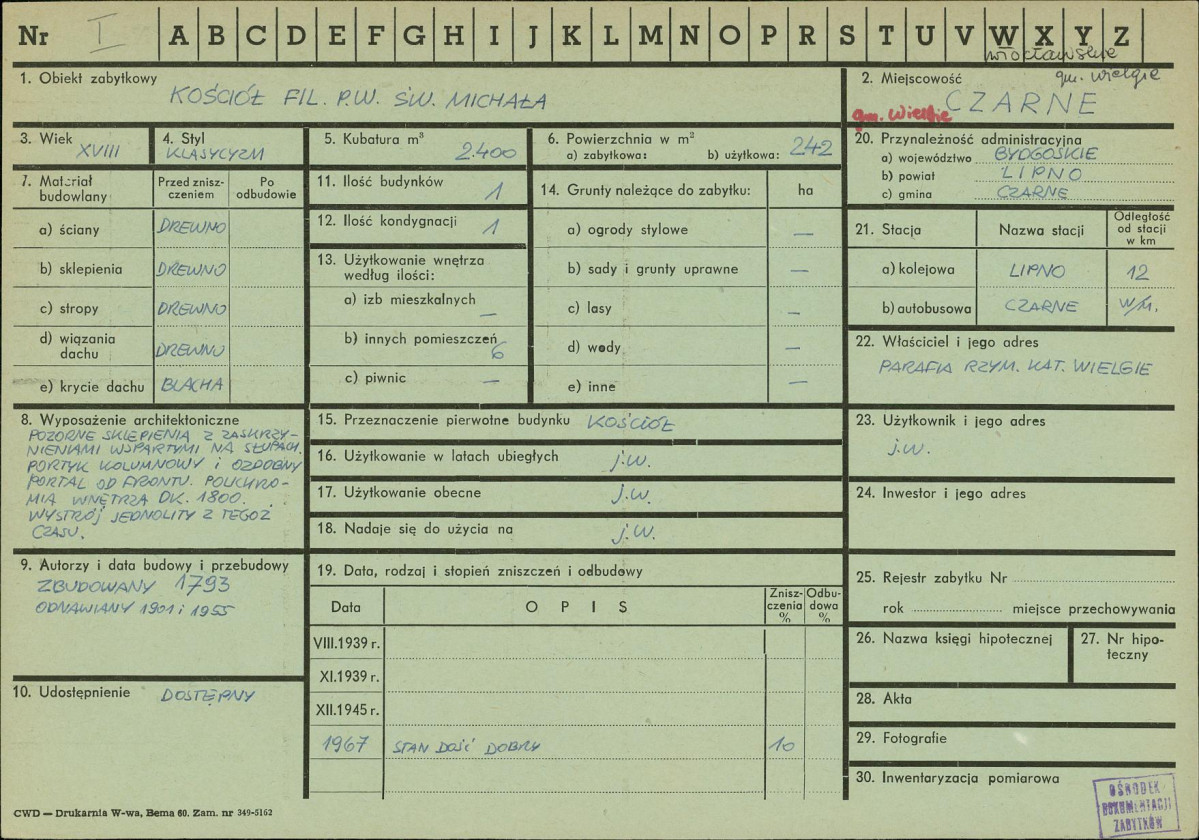 Nr I A B C D E F G H I J K L M N O P R S T U V W X Y Z
włocławskie
1. Obiekt zabytkowy
KOŚCIÓŁ FIL. P.W. ŚW. MICHAŁA
2. Miejscowość gm. Wielgie
gm. Wielgie CZARNE
3. Wiek
XVIII
4. Styl
KLASYCYZM
5. Kubatura m³
2.400
6. Powierzchnia w m²
a) zabytkowa: b) użytkowa: 242
7. Materiał budowlany
Przed zniszczeniem
Po odbudowie
a) ściany DREWNO
b) sklepienia DREWNO
c) stropy DREWNO
d) wiązania dachu DREWNO
e) krycie dachu BLACHA
8. Wyposażenie architektoniczne
POZORNE SKLEPIENIA Z ZASKRZY-
NIENIAMI WSPARTYMI NA SŁUPACH.
PORTYK KOLUMNOWY i OZDOBNY
PORTAL OD FRONTU. POLICHRO-
MIA WNĘTRZA OK. 1800.
WYSTRÓJ JEDNOLITY Z TEGOŻ
CZASU.
9. Autorzy i data budowy i przebudowy
ZBUDOWANY 1793
ODNAWIANY 1901 i 1955
10. Udostępnienie DOSTĘPNY
11. Ilość budynków 1
12. Ilość kondygnacji 1
13. Użytkowanie wnętrza
według ilości:
a) izb mieszkalnych —
b) innych pomieszczeń 6
c) piwnic —
14. Grunty należące do zabytku: ha
a) ogrody stylowe —
b) sady i grunty uprawne —
c) lasy —
d) wody —
e) inne —
15. Przeznaczenie pierwotne budynku KOŚCIÓŁ
16. Użytkowanie w latach ubiegłych j.w.
17. Użytkowanie obecne j.w.
18. Nadaje się do użycia na j.w.
19. Data, rodzaj i stopień zniszczeń i odbudowy
Data OPIS Zniszczenia % Odbudowa %
VIII.1939 r.
XI.1939 r.
XII.1945 r.
1967 STAN DOŚĆ DOBRY 10
20. Przynależność administracyjna
a) województwo BYDGOSKIE
b) powiat LIPNO
c) gmina CZARNE
21. Stacja Nazwa stacji Odległość od stacji w km
a) kolejowa LIPNO 12
b) autobusowa CZARNE W/M.
22. Właściciel i jego adres
PARAFIA RZYM. KAT. WIELGIE
23. Użytkownik i jego adres
j.w.
24. Inwestor i jego adres
25. Rejestr zabytku Nr
rok miejsce przechowywania
26. Nazwa księgi hipotecznej
27. Nr hipo-
teczny
28. Akta
29. Fotografie
30. Inwentaryzacja pomiarowa
OŚRODEK
DOKUMENTACJI
ZABYTKÓW
CWD — Drukarnia W-wa, Bema 60. Zam. nr 349-5162